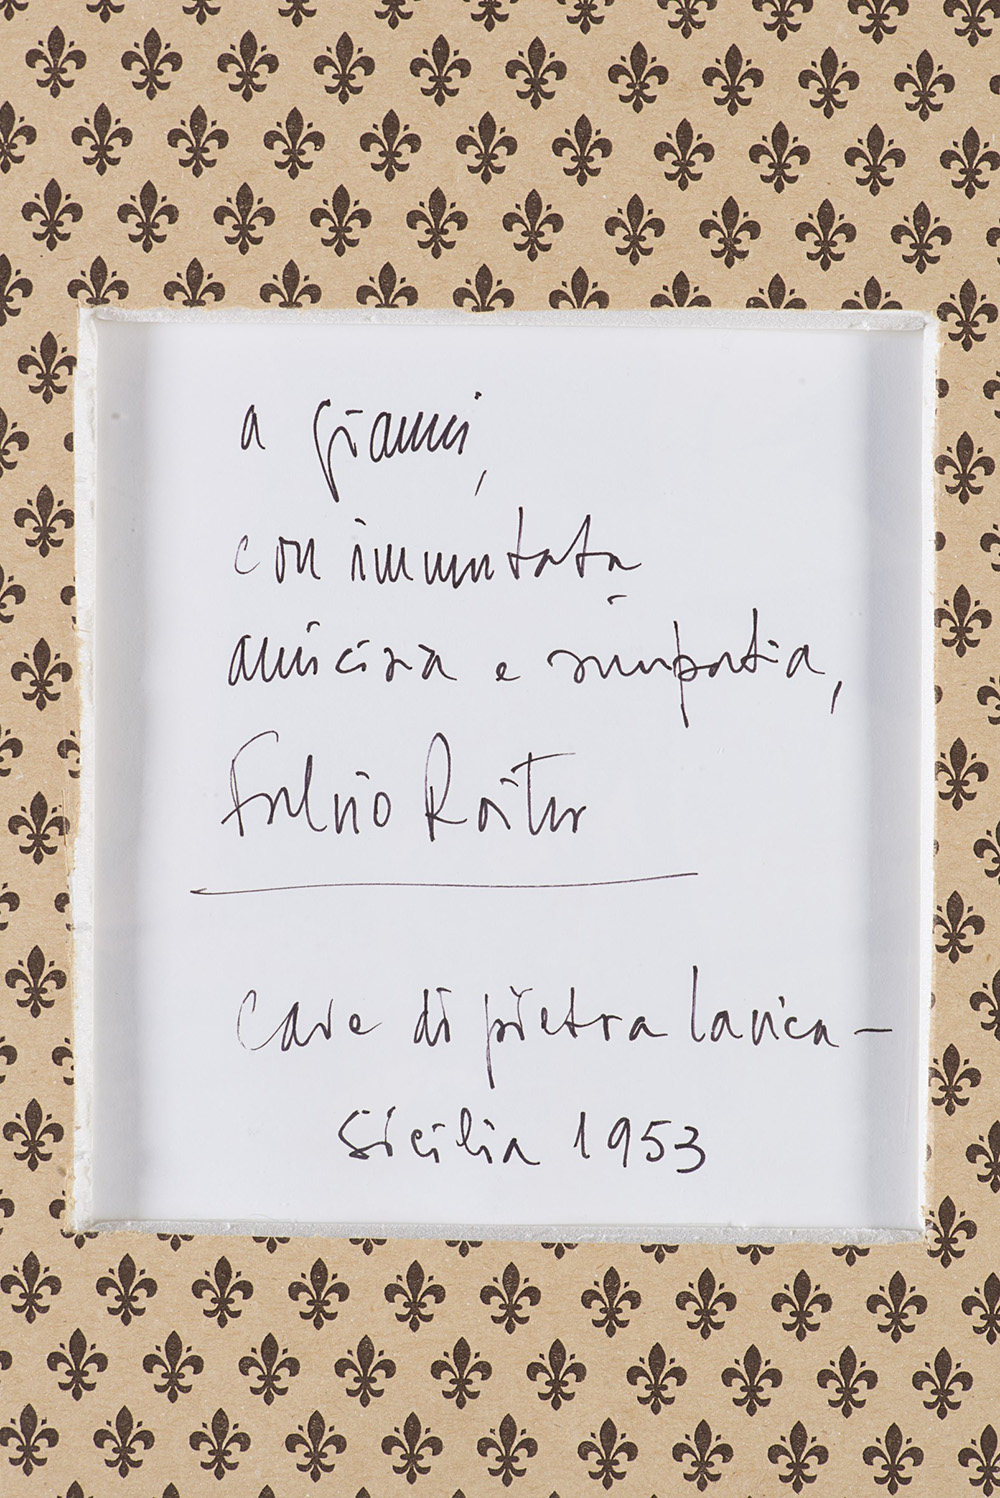 a Gianni,
con immutata
amicizia e simpatia,
Fulvio Roiter
Cave di pietra lavica -
Sicilia 1953